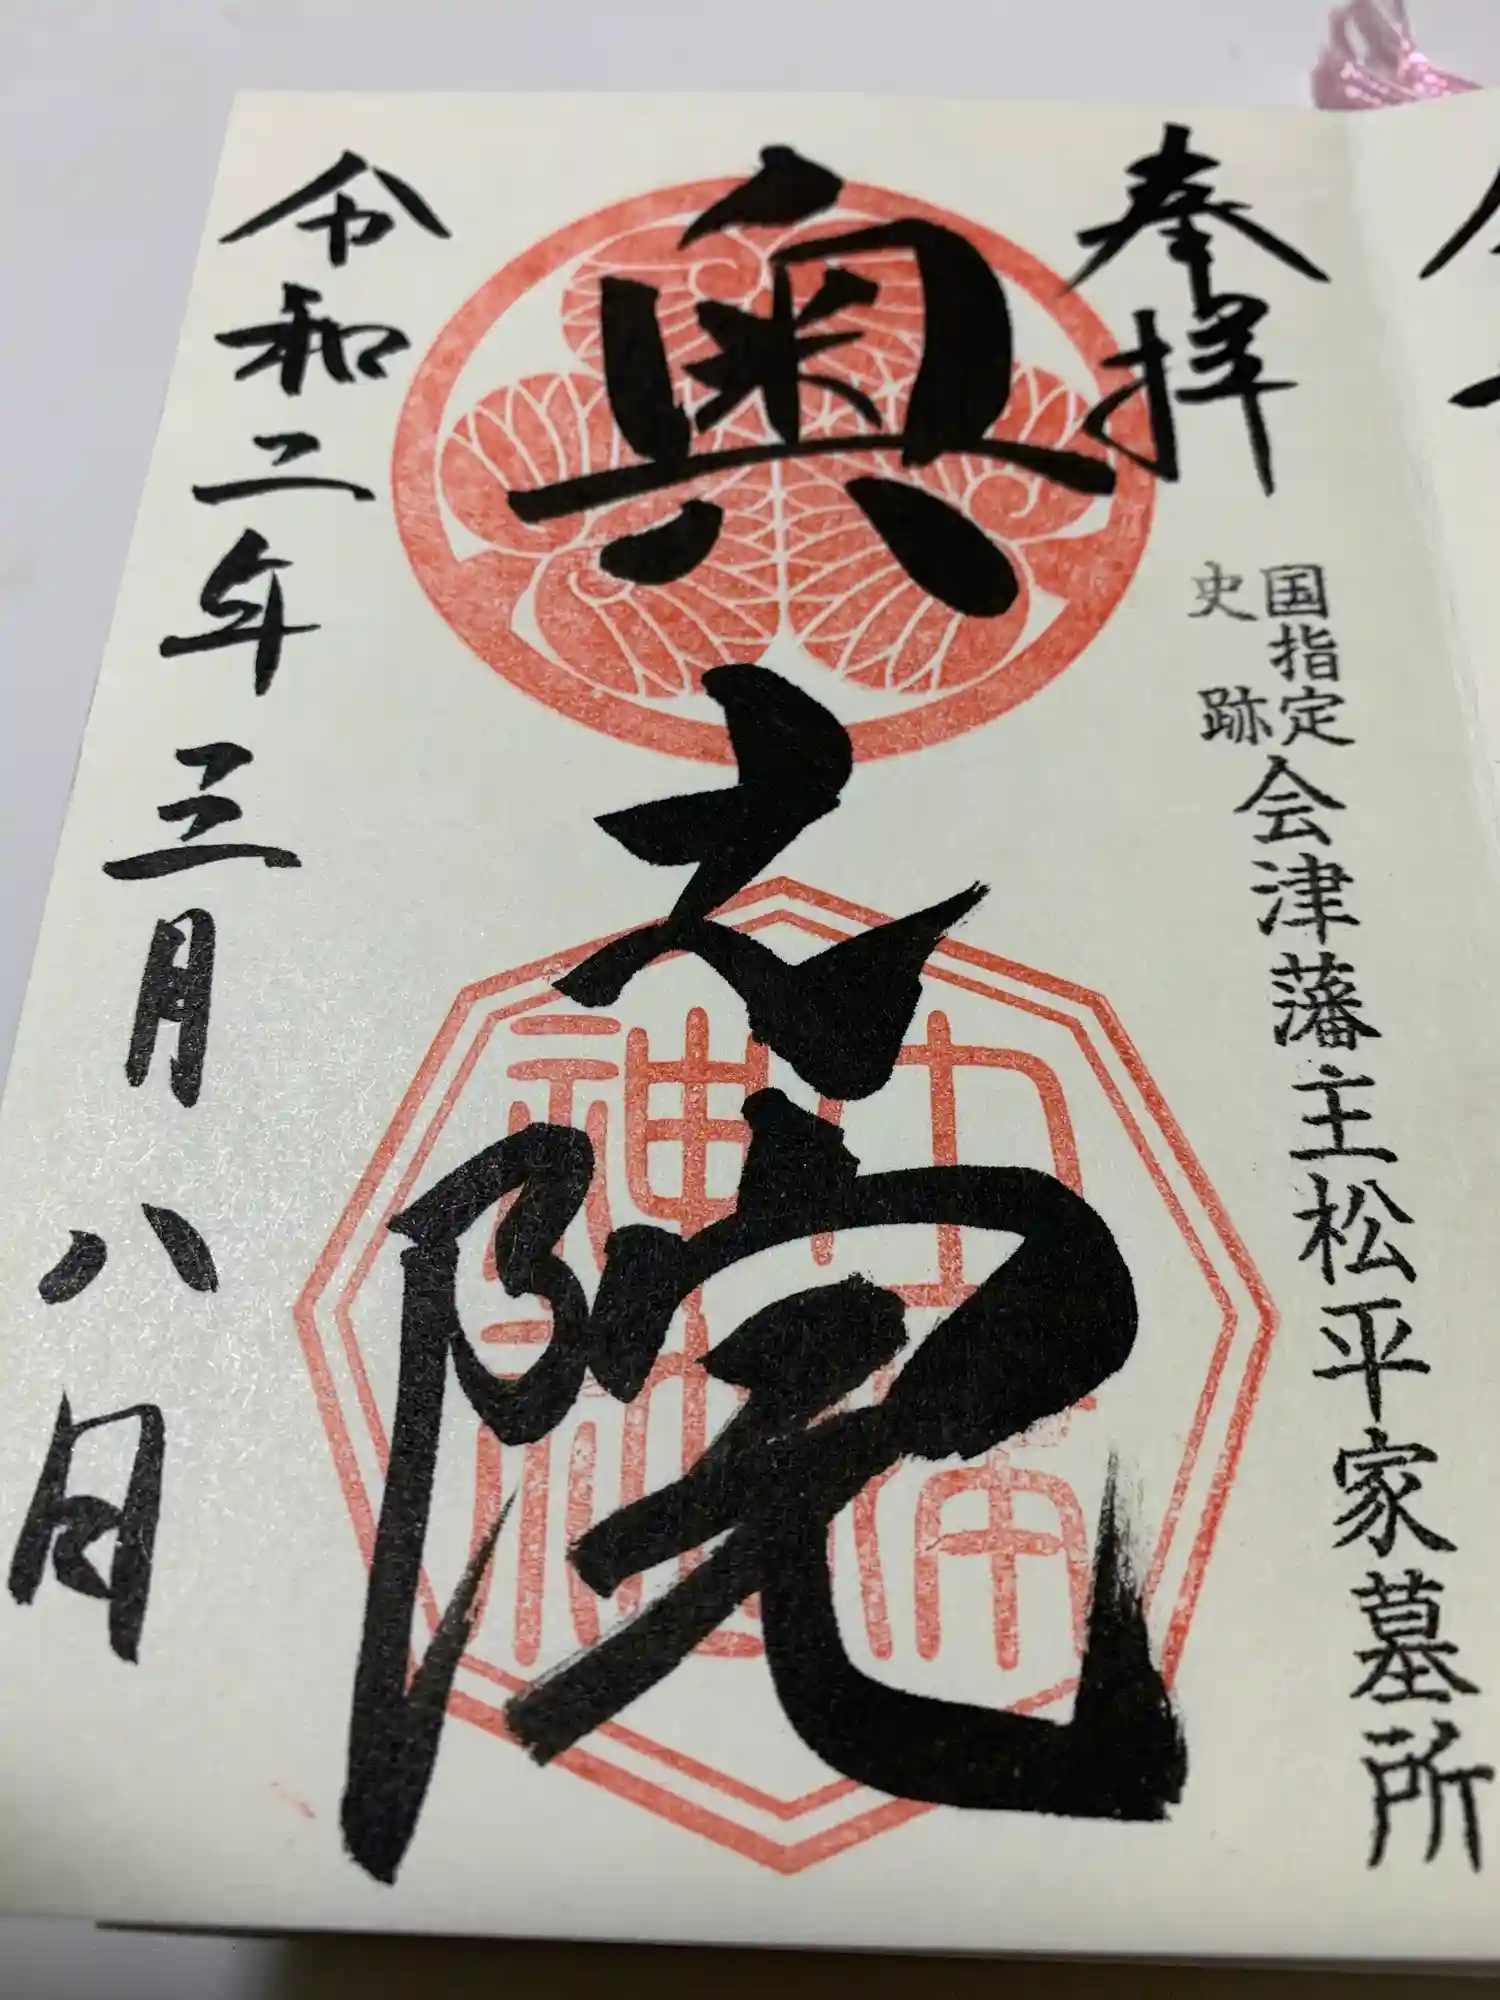 奉拝
国指定
史跡
会津藩主松平家墓所
奥之院
令和二年三月八日